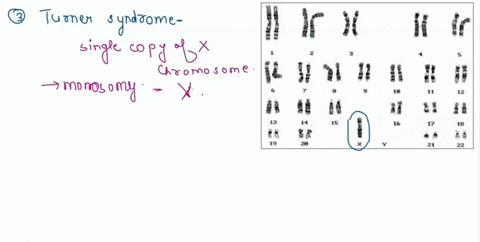 ③ Turner syndrome-
single copy of X
chromosome.
→ monosomy - X.
1 2 3 4 5
6 7 8 9 10 11 12
13 14 15 16 17 18
19 20 X Y 21 22